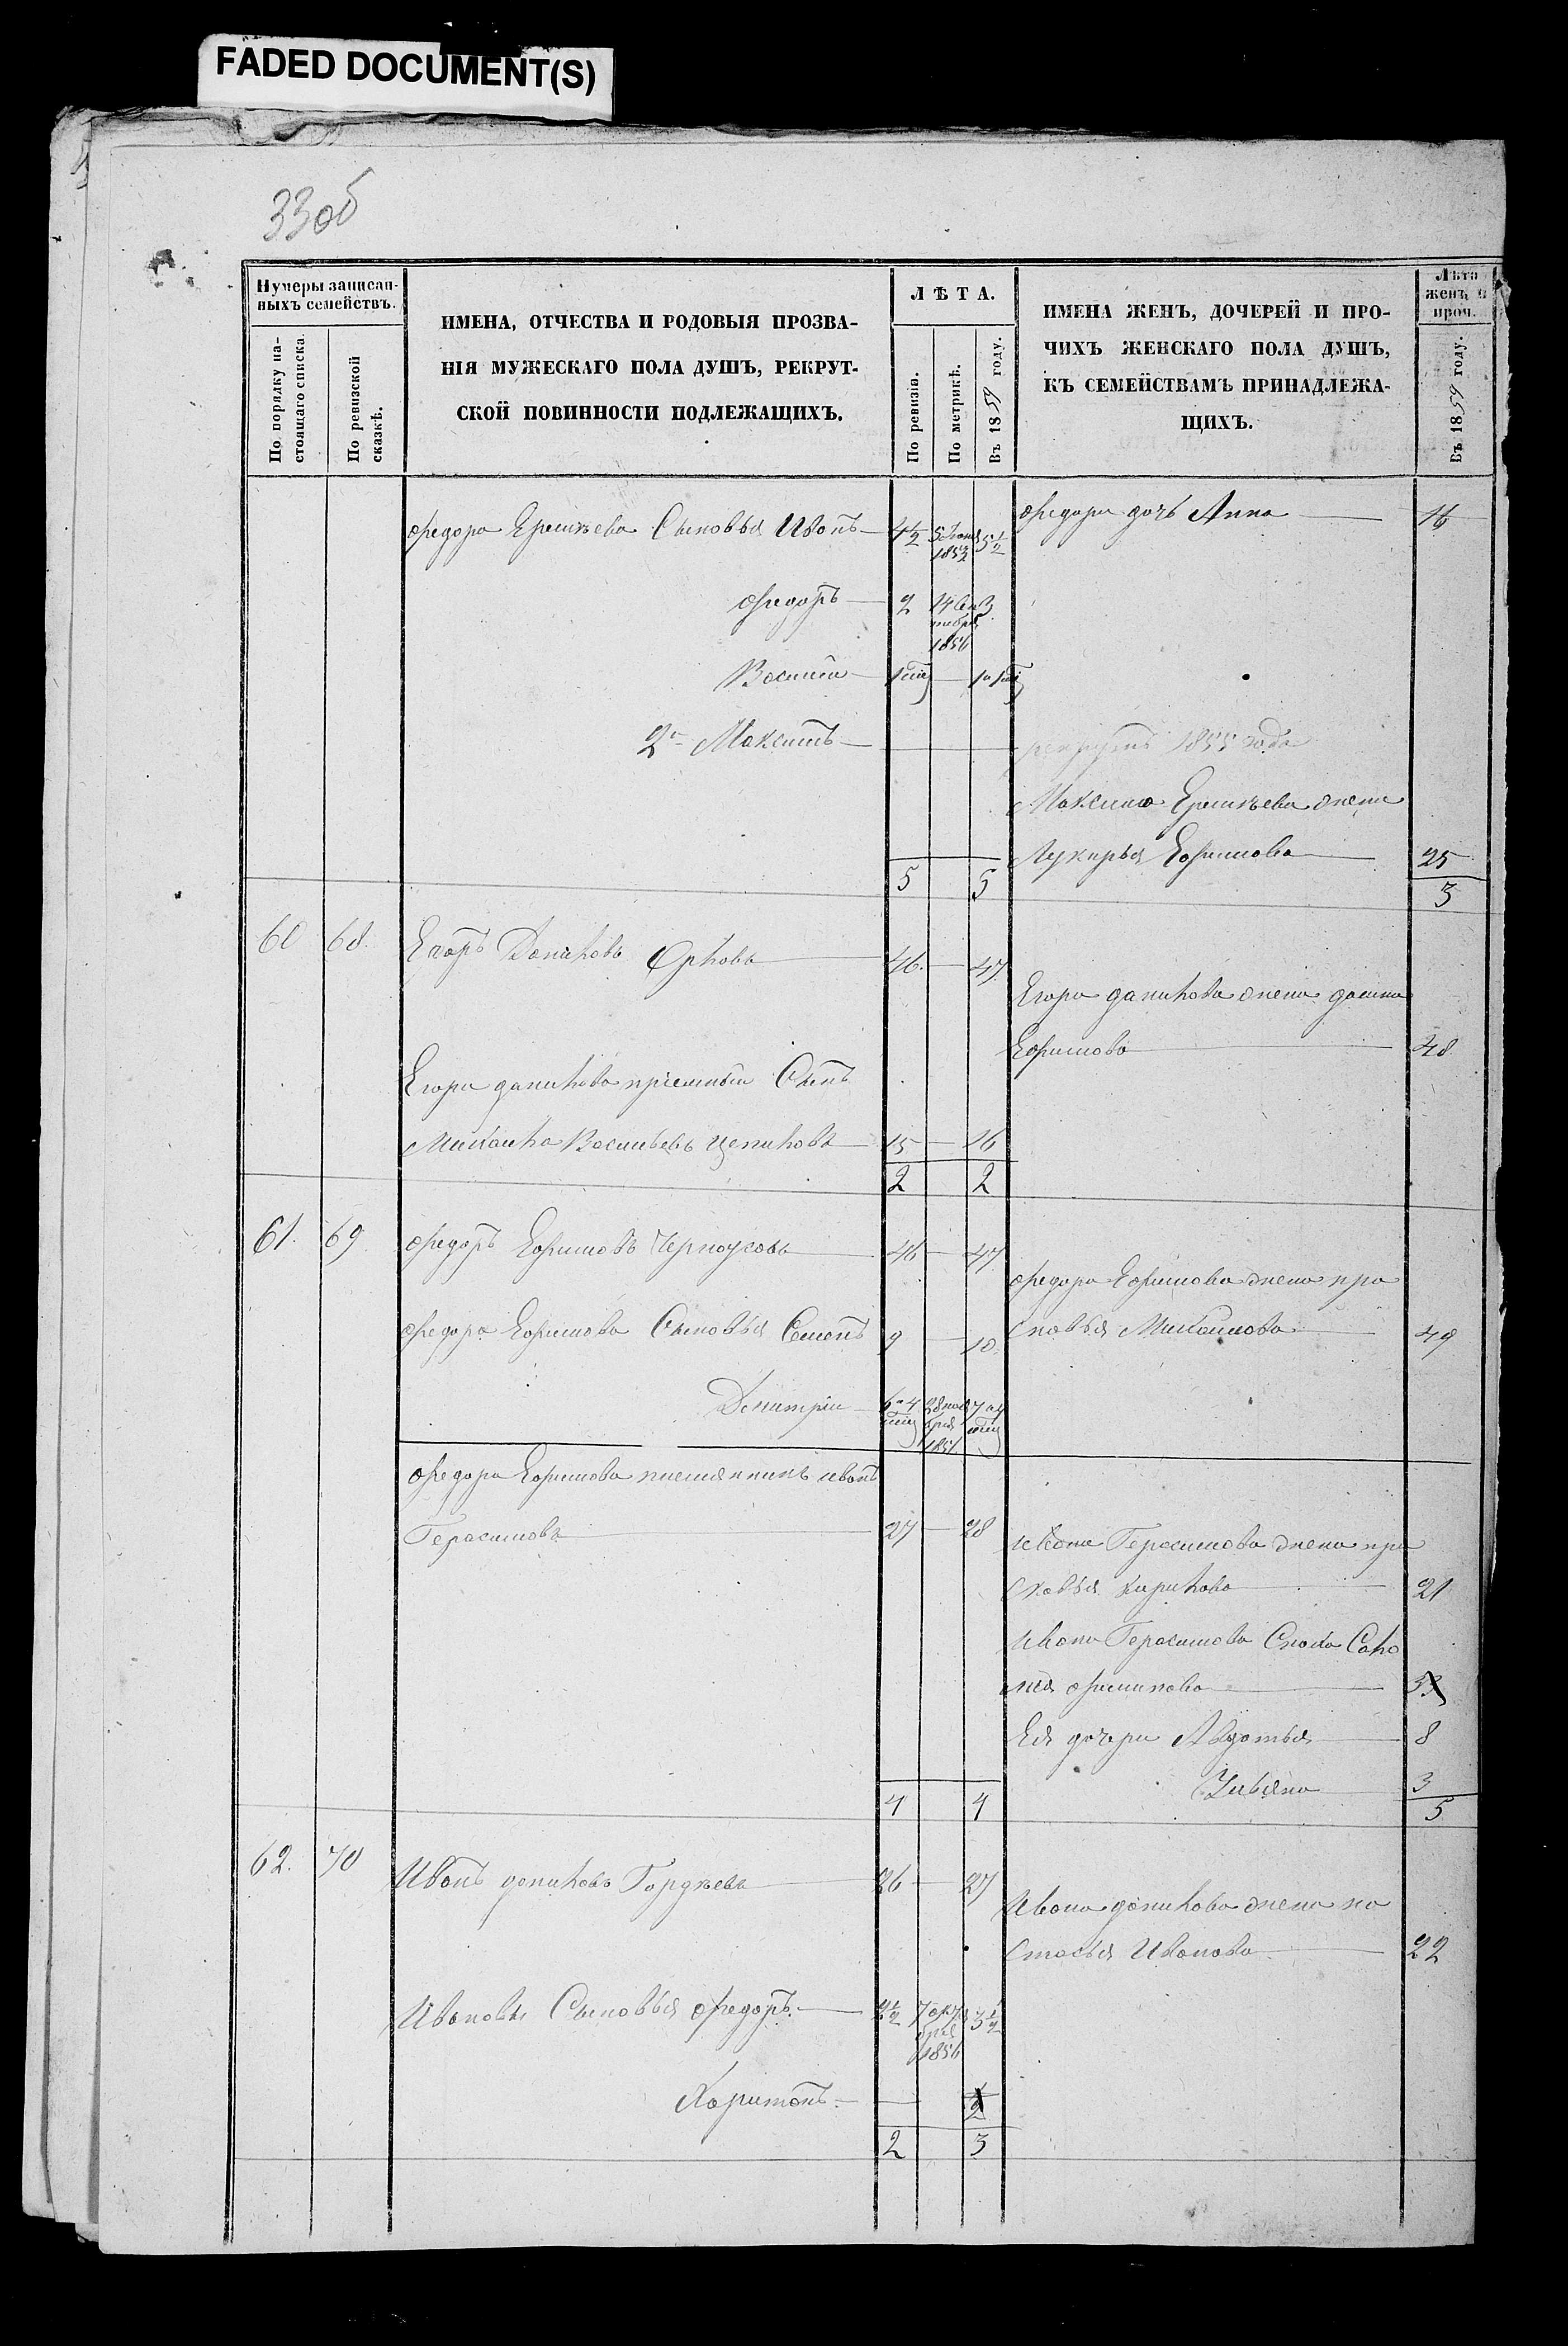 FADED DOCUMENT(S)
33об
Нумеры записан-
ныхъ семействъ.
По порядку на-
стоящаго списка.
По ревизской
сказкѣ.
ИМЕНА, ОТЧЕСТВА И РОДОВЫЯ ПРОЗВА-
НІЯ МУЖЕСКАГО ПОЛА ДУШЪ, РЕКРУТ-
СКОЙ ПОВИННОСТИ ПОДЛЕЖАЩИХЪ.
ЛѢТА.
По ревизіи.
По метрикѣ.
Въ 1859 году.
ИМЕНА ЖЕНЪ, ДОЧЕРЕЙ И ПРО-
ЧИХЪ ЖЕНСКАГО ПОЛА ДУШЪ,
КЪ СЕМЕЙСТВАМЪ ПРИНАДЛЕЖА-
ЩИХЪ.
Лѣта
женъ и
проч.
Въ 1859 году.
Федора Еремѣева Сыновья Иванъ 4½ 5½
Федора дочь Анна 16
Федоръ 2 14 Сен 3
тебря
1856
Василій
2й Максимъ
рекрутъ 1855 года
Максима Еремѣева жена
Лукерья Ефимова 25
5 5 3
60 68. Егоръ Даниловъ Орловъ 46. 47
Егора данилова жена домна
Ефимова 48
Егора данилова пріемный Сынъ
Михайла Васильевъ 15 16
2 2
61. 69 Федоръ Ефимовъ Черноусовъ 46 47
Федора Ефимова жена пра
Федора Ефимова Сыновья Семенъ 9 10.
сковья Михайлова 49
Дмитрій
Федора Ефимова племянникъ иванъ
Герасимовъ 27 28
ивана Герасимова жена пра
сковья кирилова 21
ивана Герасимова Сноха Сало
мея
Ея дочери Авдотья 8
Ульяна 3
4 4 5
62. 70 Иванъ даниловъ Гордѣевъ 26 27
Ивана данилова жена на
стасья Иванова 22
Ивановы Сыновья Федоръ. 2½ 7 ок 3½
1856
Харитонъ.
2 3